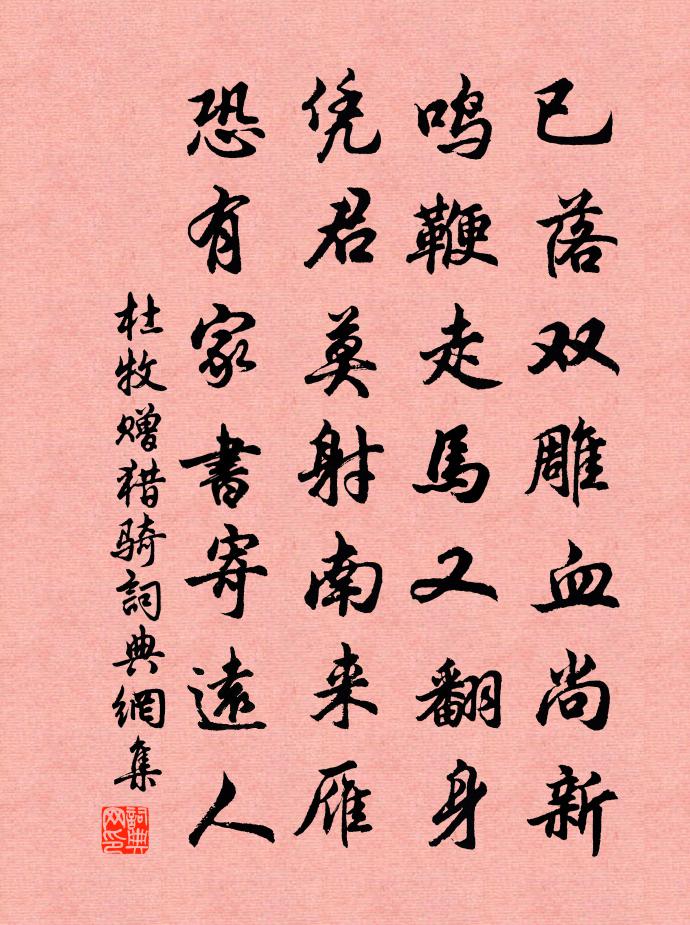 已落双雕血尚新
鸣鞭走馬又翻身
凭君莫射南来雁
恐有家書寄遠人
杜牧赠猎骑詞典網集
詞典网印